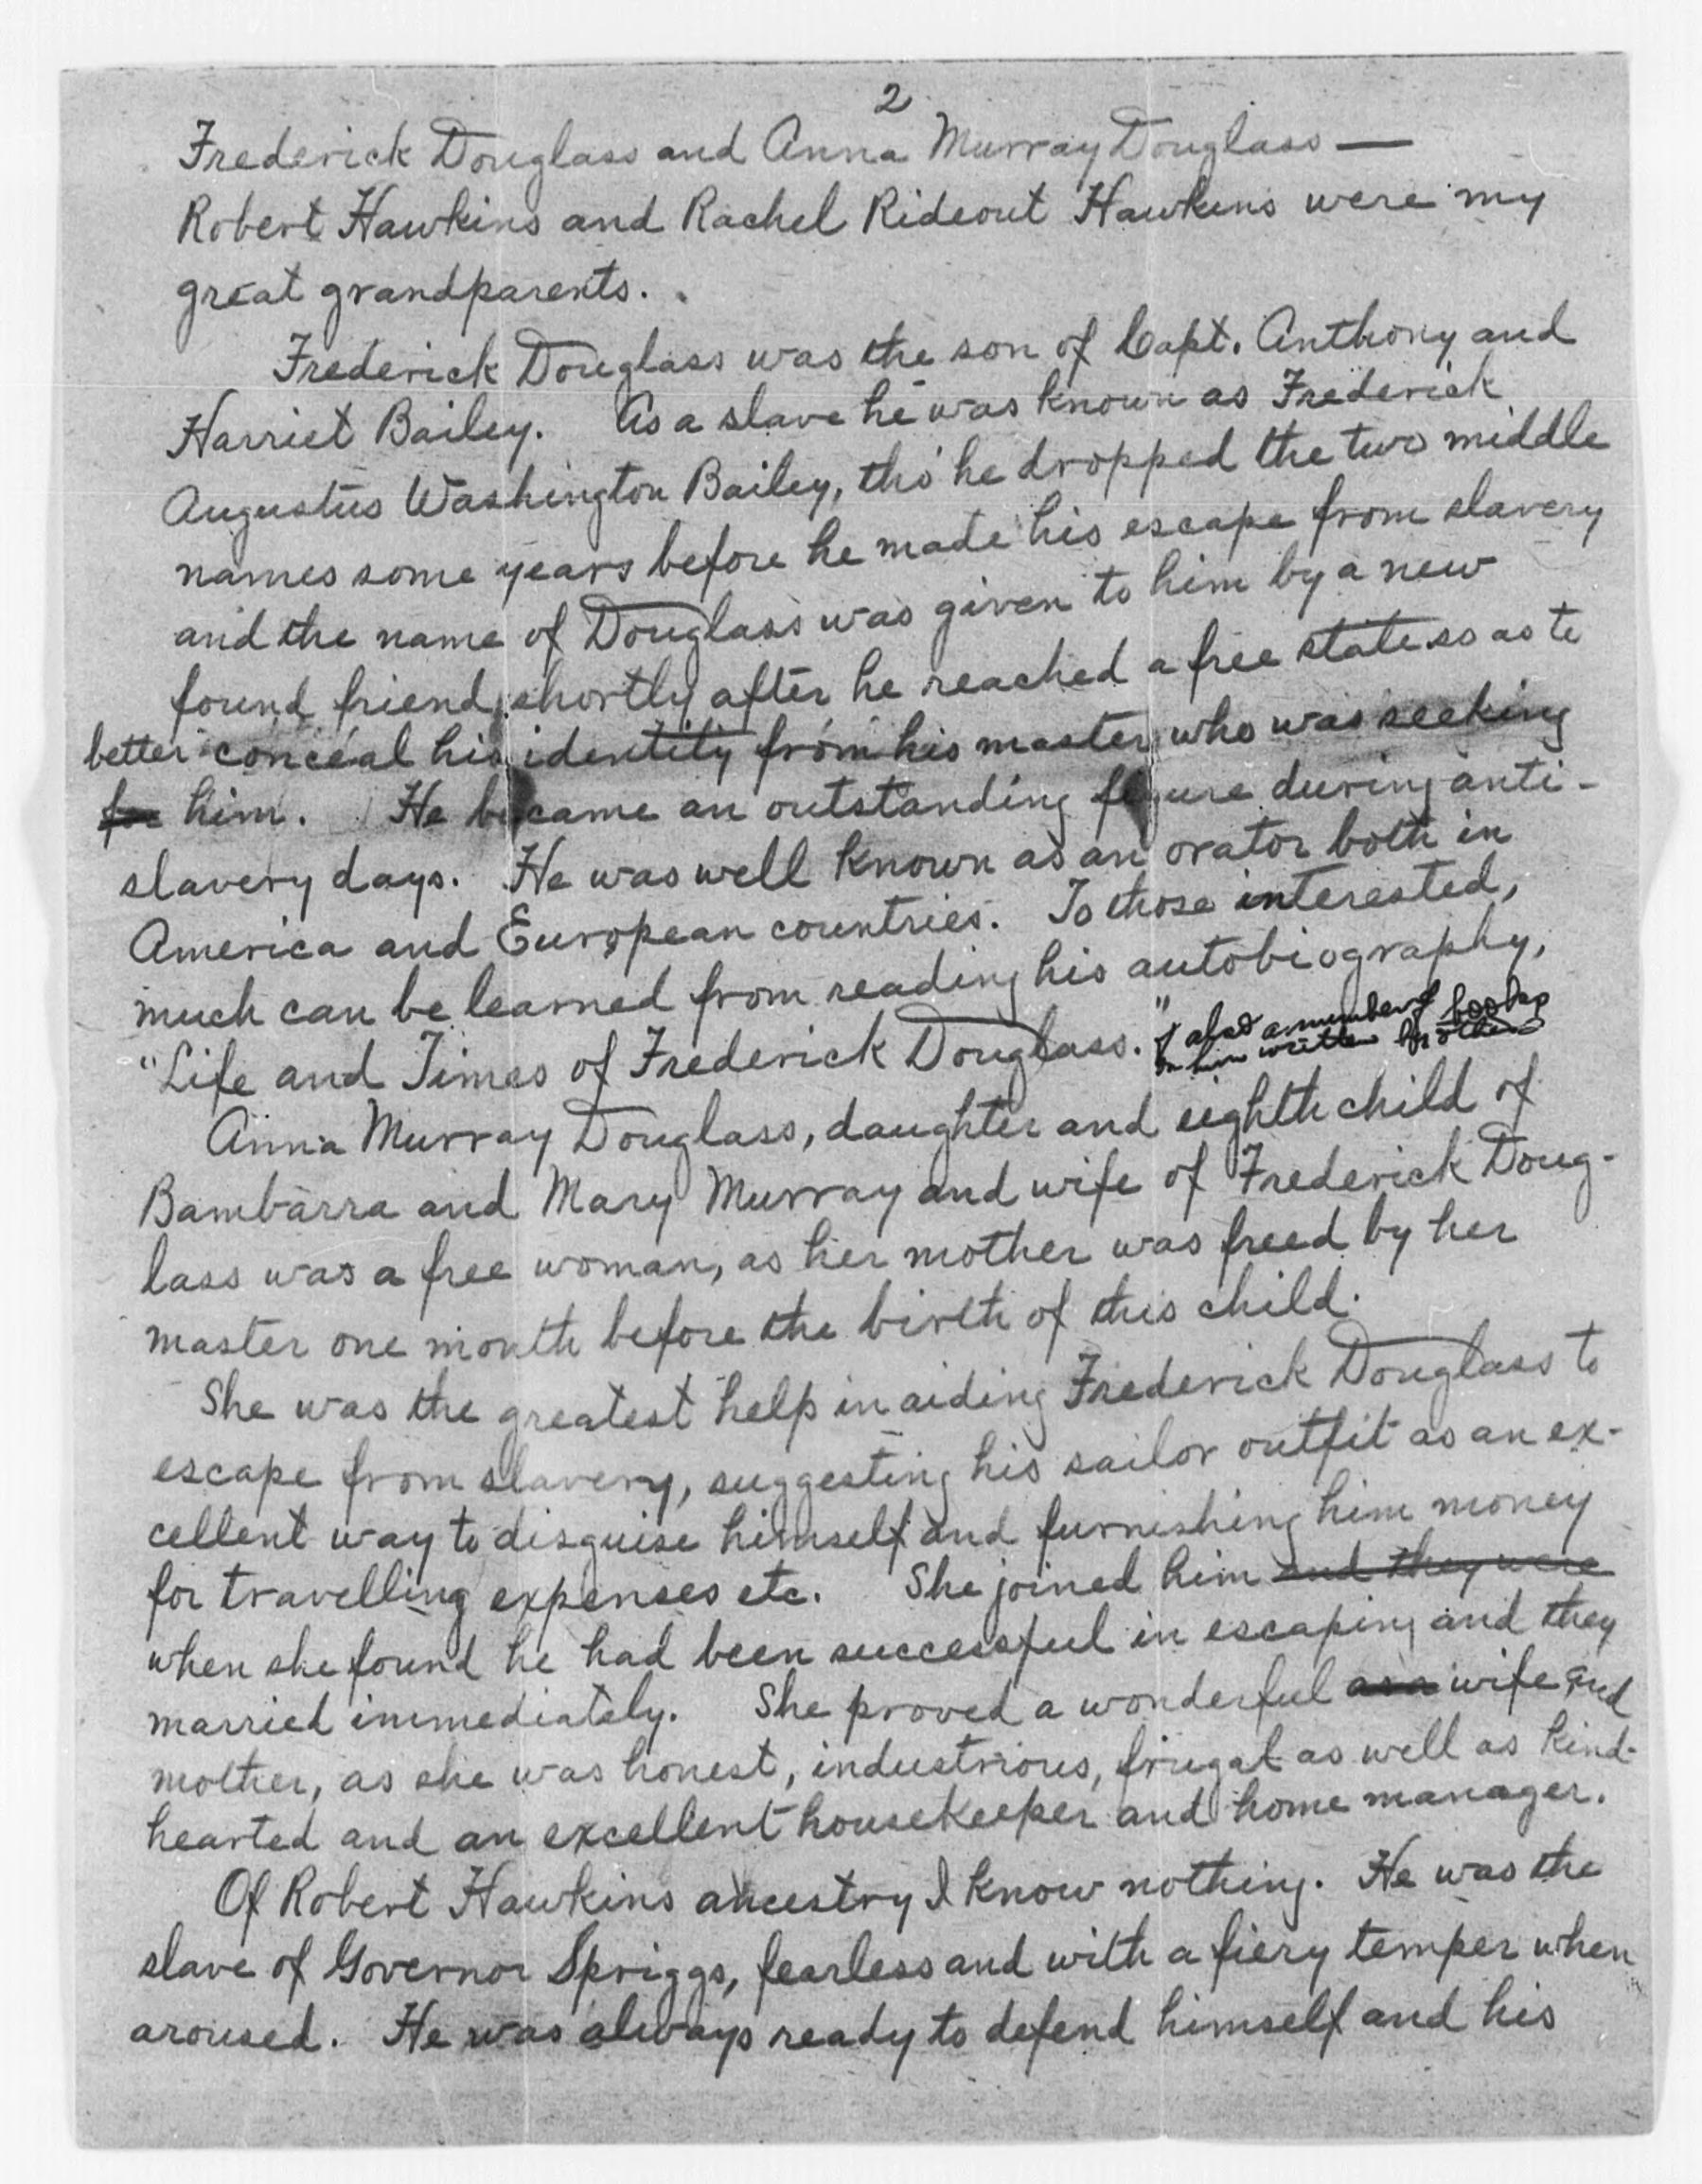 2
Frederick Douglass and Anna Murray Douglass —
Robert Hawkins and Rachel Rideout Hawkins were my
great grandparents.
Frederick Douglass was the son of Capt. Anthony and
Harriet Bailey. As a slave he was known as Frederick
Augustus Washington Bailey, tho' he dropped the two middle
names some years before he made his escape from slavery
and the name of Douglass was given to him by a new
found friend, shortly after he reached a free state so as to
better conceal his identity from his master who was seeking
for him. He became an outstanding figure during anti-
slavery days. He was well known as an orator both in
America and European countries. To those interested,
much can be learned from reading his autobiography,
"Life and Times of Frederick Douglass." & also a number of books
on him written by others
Anna Murray Douglass, daughter and eighth child of
Bambarra and Mary Murray and wife of Frederick Doug-
lass was a free woman, as her mother was freed by her
master one month before the birth of this child.
She was the greatest help in aiding Frederick Douglass to
escape from slavery, suggesting his sailor outfit as an ex-
cellent way to disguise himself and furnishing him money
for travelling expenses etc. She joined him and they were
when she found he had been successful in escaping and they
married immediately. She proved a wonderful as a wife and
mother, as she was honest, industrious, frugal as well as kind-
hearted and an excellent housekeeper and home manager.
Of Robert Hawkins ancestry I know nothing. He was the
slave of Governor Spriggs, fearless and with a fiery temper when
aroused. He was always ready to defend himself and his